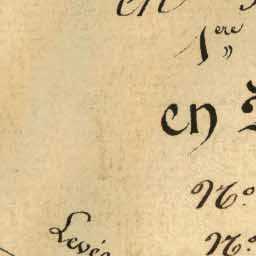 en
1ere
"
en
No.
Levée
No.